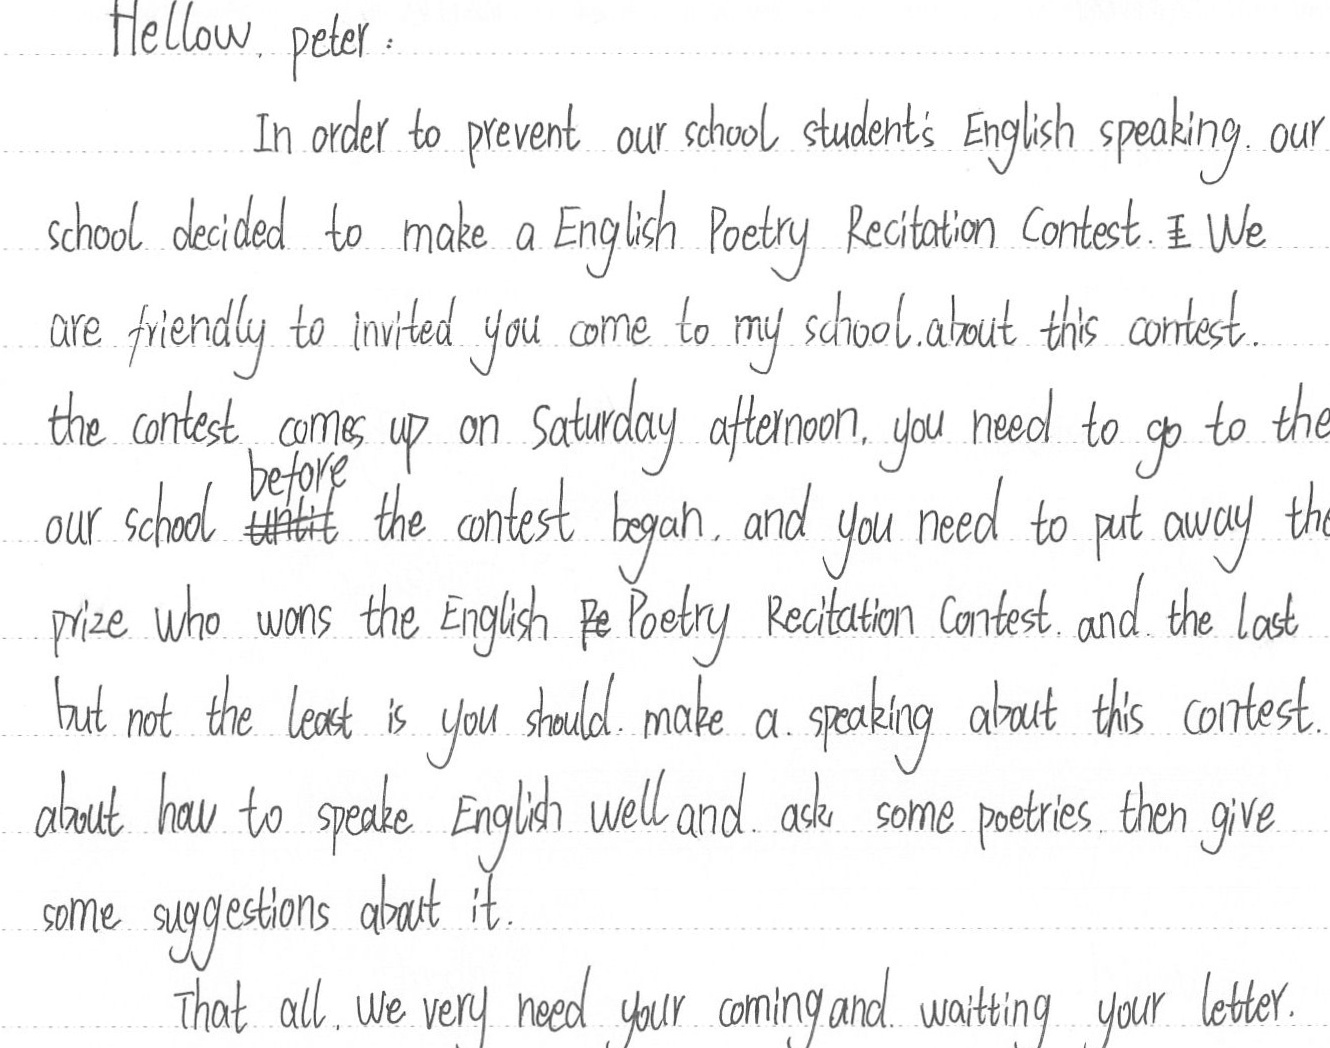 Hellow, peter:
In order to prevent our school student's English speaking. our
school decided to make a English Poetry Recitation Contest. I We
are friendly to invited you come to my school. about this contest.
the contest comes up on Saturday afternoon, you need to go to the
before
our school until the contest began. and you need to put away the
prize who wons the English Pe Poetry Recitation Contest. and the last
but not the least is you should make a speaking about this contest.
about how to speake English well and ask some poetries. then give
some suggestions about it.
That all. We very need your coming and waitting your letter.